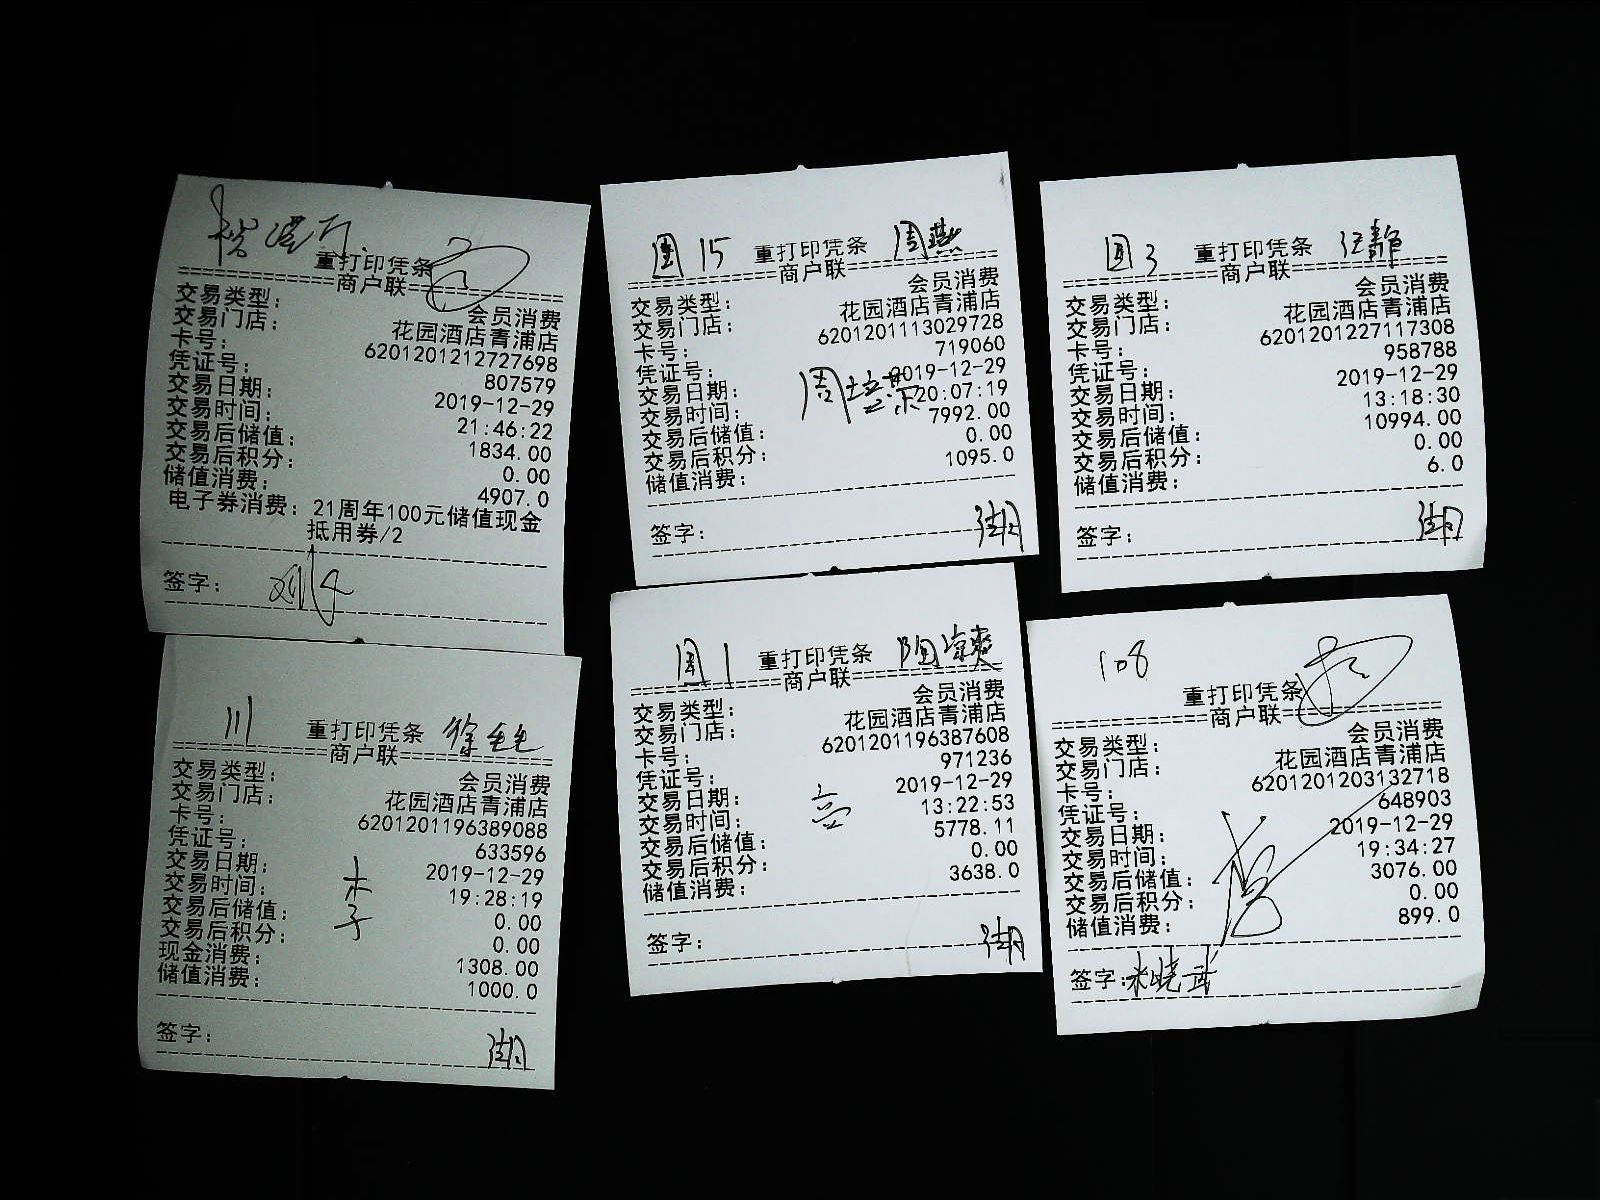 重打印凭条
商户联
交易类型： 会员消费
交易门店： 花园酒店青浦店
卡号： 6201201212727698
凭证号： 807579
交易日期： 2019-12-29
交易时间： 21:46:22
交易后储值： 1834.00
交易后积分： 0.00
储值消费： 4907.0
电子券消费：21周年100元储值现金
抵用券/2
签字：
15 重打印凭条 周燕
商户联
交易类型： 会员消费
交易门店： 花园酒店青浦店
卡号： 6201201113029728
凭证号： 719060
交易日期： 2019-12-29
交易时间： 20:07:19
交易后储值： 7992.00
交易后积分： 0.00
储值消费： 1095.0
周培荣
签字：
3 重打印凭条 汪静
商户联
交易类型： 会员消费
交易门店： 花园酒店青浦店
卡号： 6201201227117308
凭证号： 958788
交易日期： 2019-12-29
交易时间： 13:18:30
交易后储值： 10994.00
交易后积分： 0.00
储值消费： 6.0
签字：
111 重打印凭条 徐
商户联
交易类型： 会员消费
交易门店： 花园酒店青浦店
卡号： 6201201196389088
凭证号： 633596
交易日期： 2019-12-29
交易时间： 19:28:19
交易后储值： 0.00
交易后积分： 0.00
现金消费： 1308.00
储值消费： 1000.0
李
签字：
1 重打印凭条
商户联
交易类型： 会员消费
交易门店： 花园酒店青浦店
卡号： 6201201196387608
凭证号： 971236
交易日期： 2019-12-29
交易时间： 13:22:53
交易后储值： 5778.11
交易后积分： 0.00
储值消费： 3638.0
签字：
108
重打印凭条
商户联
交易类型： 会员消费
交易门店： 花园酒店青浦店
卡号： 6201201203132718
凭证号： 648903
交易日期： 2019-12-29
交易时间： 19:34:27
交易后储值： 3076.00
交易后积分： 0.00
储值消费： 899.0
签字：